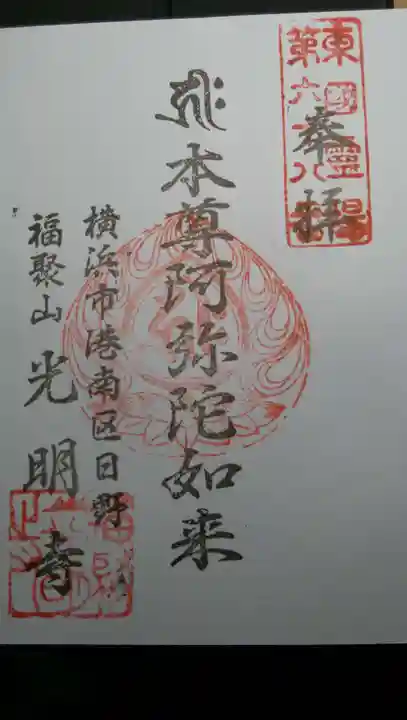 奉拝
東国霊場
第六十八番
本尊阿弥陀如来
横浜市港南区日野
福聚山 光明寺